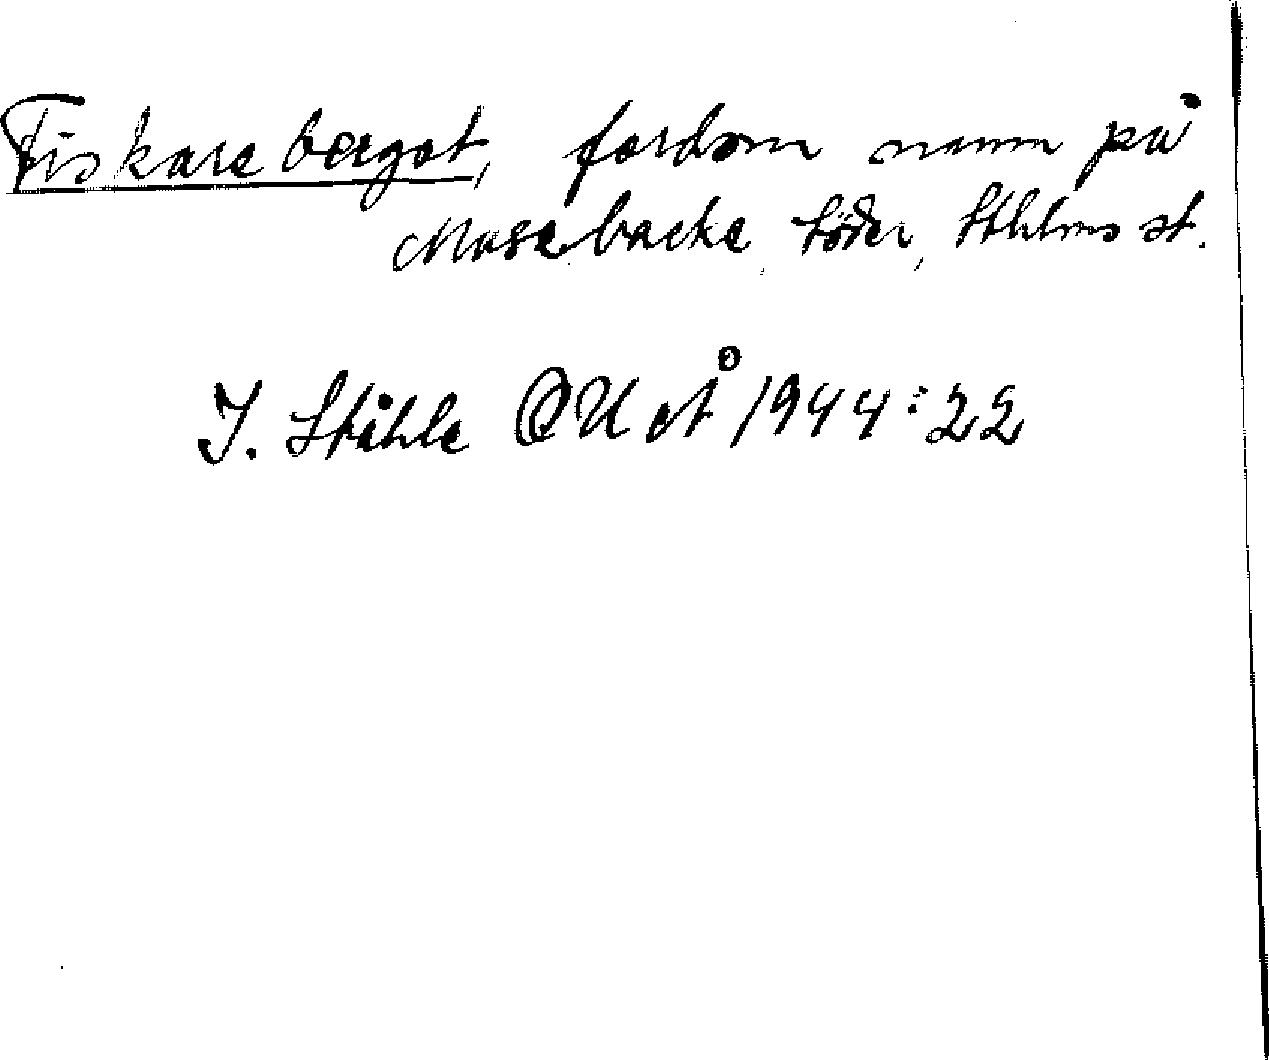 Fiskarebergot, fordom namn på
Mosebacke, Söder, Sthlms st.
I. Ståhle OUÅ 1944:22